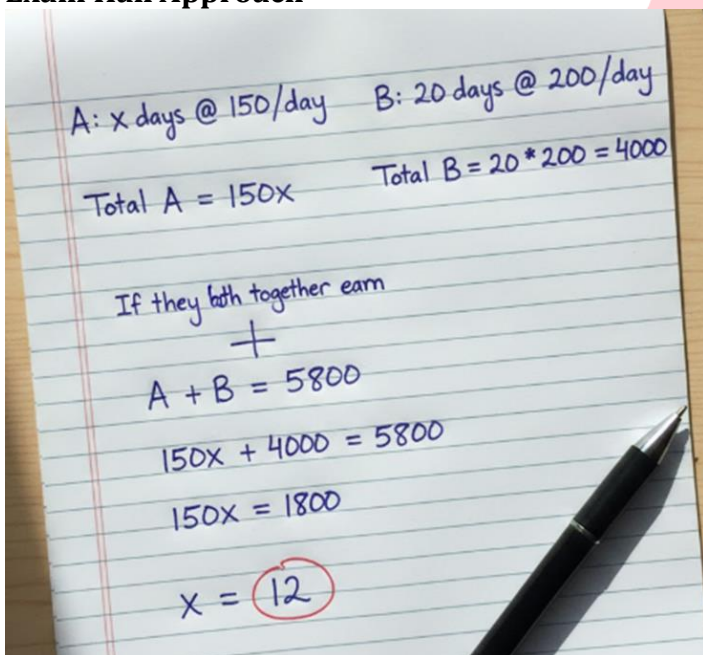 A: x days @ 150/day B: 20 days @ 200/day
Total A = 150x Total B = 20 * 200 = 4000
If they both together earn
+
A + B = 5800
150x + 4000 = 5800
150x = 1800
x = 12